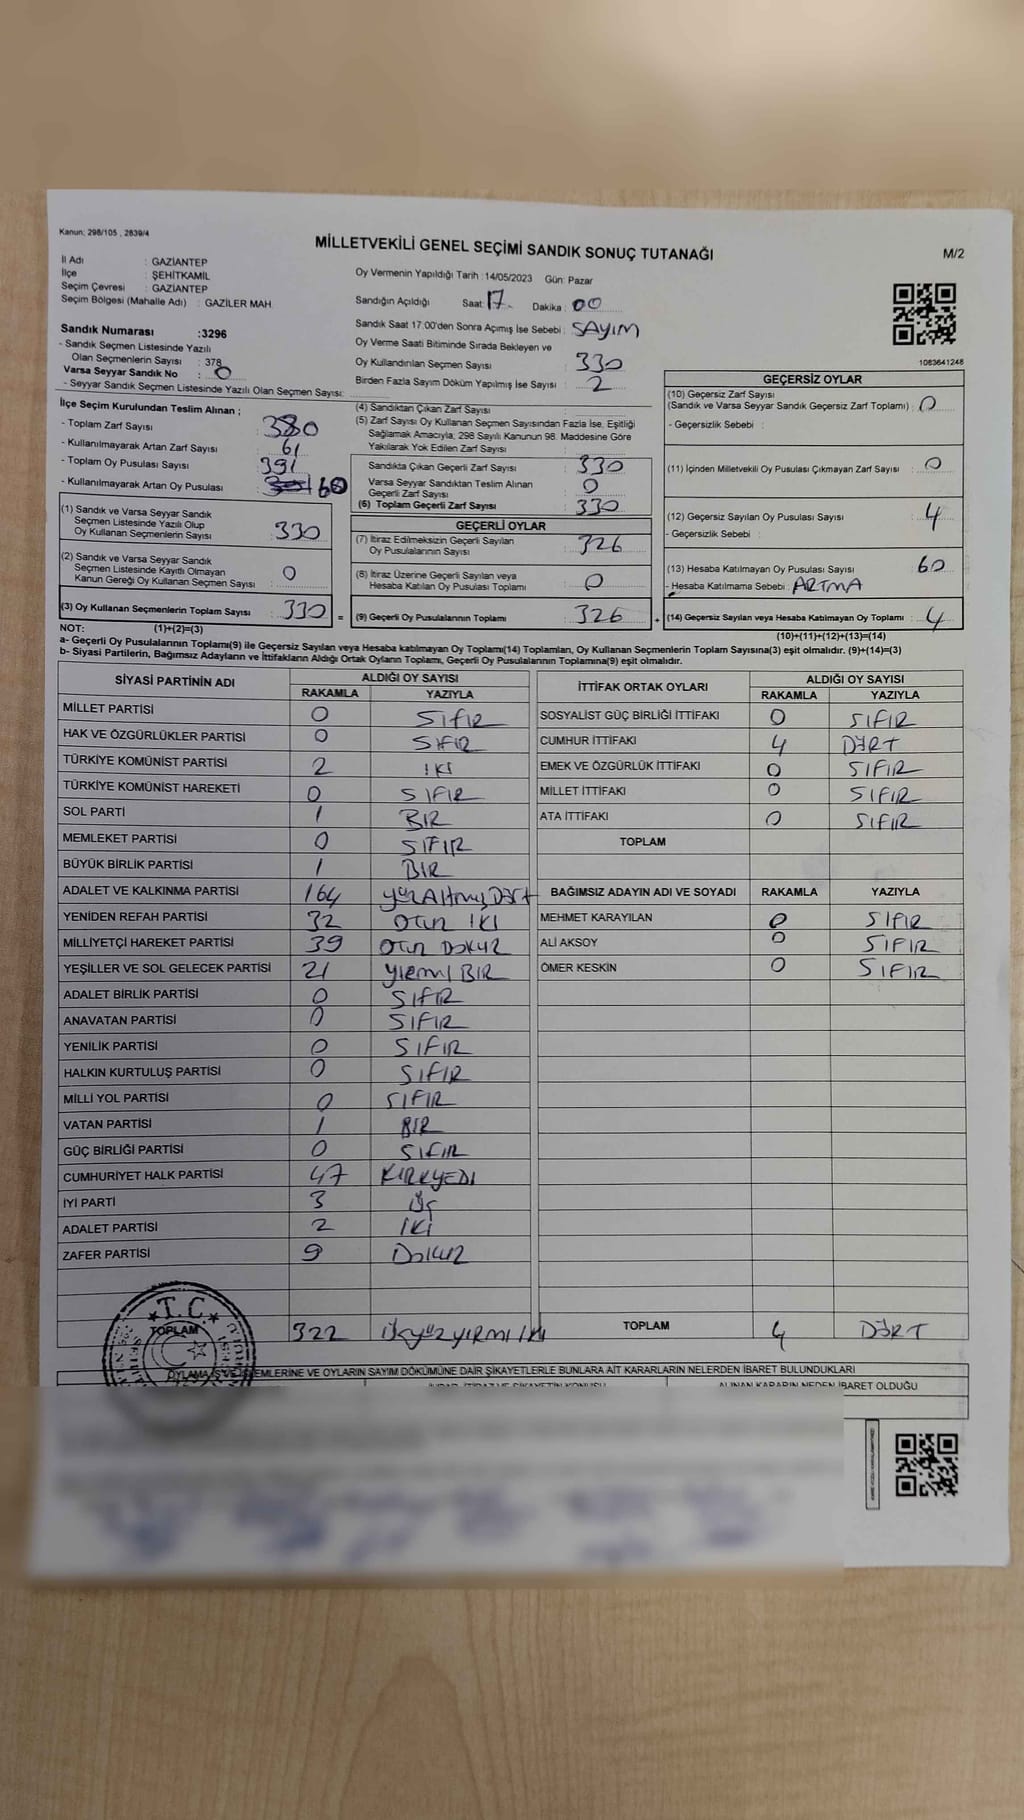 Kanun; 298/105 , 2839/4
MİLLETVEKİLİ GENEL SEÇİMİ SANDIK SONUÇ TUTANAĞI
M/2
İl Adı : GAZİANTEP
İlçe : ŞEHİTKAMİL
Seçim Çevresi : GAZİANTEP
Seçim Bölgesi (Mahalle Adı) : GAZİLER MAH.
Sandık Numarası :3296
- Sandık Seçmen Listesinde Yazılı
Olan Seçmenlerin Sayısı : 378
Varsa Seyyar Sandık No : 0
- Seyyar Sandık Seçmen Listesinde Yazılı Olan Seçmen Sayısı:
Oy Vermenin Yapıldığı Tarih : 14/05/2023 Gün: Pazar
Sandığın Açıldığı Saat: 17 Dakika : 00
Sandık Saat 17:00'den Sonra Açımış İse Sebebi : SAYIM
Oy Verme Saati Bitiminde Sırada Bekleyen ve
Oy Kullandırılan Seçmen Sayısı : 330
Birden Fazla Sayım Döküm Yapılmış İse Sayısı : 2
1083641248
İlçe Seçim Kurulundan Teslim Alınan ;
- Toplam Zarf Sayısı : 380
- Kullanılmayarak Artan Zarf Sayısı : 61
- Toplam Oy Pusulası Sayısı : 391
- Kullanılmayarak Artan Oy Pusulası : 60
(1) Sandık ve Varsa Seyyar Sandık
Seçmen Listesinde Yazılı Olup
Oy Kullanan Seçmenlerin Sayısı : 330
(2) Sandık ve Varsa Seyyar Sandık
Seçmen Listesinde Kayıtlı Olmayan
Kanun Gereği Oy Kullanan Seçmen Sayısı : 0
(3) Oy Kullanan Seçmenlerin Toplam Sayısı : 330 =
(4) Sandıktan Çıkan Zarf Sayısı :
(5) Zarf Sayısı Oy Kullanan Seçmen Sayısından Fazla İse, Eşitliği
Sağlamak Amacıyla, 298 Sayılı Kanunun 98. Maddesine Göre
Yakılarak Yok Edilen Zarf Sayısı :
Sandıkta Çıkan Geçerli Zarf Sayısı : 330
Varsa Seyyar Sandıktan Teslim Alınan
Geçerli Zarf Sayısı : 0
(6) Toplam Geçerli Zarf Sayısı : 330
GEÇERLİ OYLAR
(7) İtiraz Edilmeksizin Geçerli Sayılan
Oy Pusulalarının Sayısı : 326
(8) İtiraz Üzerine Geçerli Sayılan veya
Hesaba Katılan Oy Pusulaları Toplamı : 0
(9) Geçerli Oy Pusulalarının Toplamı : 326 +
GEÇERSİZ OYLAR
(10) Geçersiz Zarf Sayısı
(Sandık ve Varsa Seyyar Sandık Geçersiz Zarf Toplamı) : 0
- Geçersizlik Sebebi :
(11) İçinden Milletvekili Oy Pusulası Çıkmayan Zarf Sayısı : 0
(12) Geçersiz Sayılan Oy Pusulası Sayısı : 4
- Geçersizlik Sebebi :
(13) Hesaba Katılmayan Oy Pusulası Sayısı : 60
- Hesaba Katılmama Sebebi : ARTMA
(14) Geçersiz Sayılan veya Hesaba Katılmayan Oy Toplamı : 4
NOT: (1)+(2)=(3)
(10)+(11)+(12)+(13)=(14)
a- Geçerli Oy Pusulalarının Toplamı(9) ile Geçersiz Sayılan veya Hesaba katılmayan Oy Toplamı(14) Toplamları, Oy Kullanan Seçmenlerin Toplam Sayısına(3) eşit olmalıdır. (9)+(14)=(3)
b- Siyasi Partilerin, Bağımsız Adayların ve İttifakların Aldığı Ortak Oyların Toplamı, Geçerli Oy Pusulalarının Toplamına(9) eşit olmalıdır.
SİYASİ PARTİNİN ADI ALDIĞI OY SAYISI
RAKAMLA YAZIYLA
MİLLET PARTİSİ 0 SIFIR
HAK VE ÖZGÜRLÜKLER PARTİSİ 0 SIFIR
TÜRKİYE KOMÜNİST PARTİSİ 2 IKI
TÜRKİYE KOMÜNİST HAREKETİ 0 SIFIR
SOL PARTİ 1 BIR
MEMLEKET PARTİSİ 0 SIFIR
BÜYÜK BİRLİK PARTİSİ 1 BIR
ADALET VE KALKINMA PARTİSİ 164 yüzAltmışDört
YENİDEN REFAH PARTİSİ 32 OTUZ IKI
MİLLİYETÇİ HAREKET PARTİSİ 39 OTUZ DOKUZ
YEŞİLLER VE SOL GELECEK PARTİSİ 21 YIRMI BIR
ADALET BİRLİK PARTİSİ 0 SIFIR
ANAVATAN PARTİSİ 0 SIFIR
YENİLİK PARTİSİ 0 SIFIR
HALKIN KURTULUŞ PARTİSİ 0 SIFIR
MİLLİ YOL PARTİSİ 0 SIFIR
VATAN PARTİSİ 1 BIR
GÜÇ BİRLİĞİ PARTİSİ 0 SIFIR
CUMHURİYET HALK PARTİSİ 47 KIRKYEDI
İYİ PARTİ 3 ÜÇ
ADALET PARTİSİ 2 IKI
ZAFER PARTİSİ 9 DOKUZ
TOPLAM 322 üçyüzyirmi iki
İTTİFAK ORTAK OYLARI ALDIĞI OY SAYISI
RAKAMLA YAZIYLA
SOSYALİST GÜÇ BİRLİĞİ İTTİFAKI 0 SIFIR
CUMHUR İTTİFAKI 4 DÖRT
EMEK VE ÖZGÜRLÜK İTTİFAKI 0 SIFIR
MİLLET İTTİFAKI 0 SIFIR
ATA İTTİFAKI 0 SIFIR
TOPLAM
BAĞIMSIZ ADAYIN ADI VE SOYADI RAKAMLA YAZIYLA
MEHMET KARAYILAN 0 SIFIR
ALİ AKSOY 0 SIFIR
ÖMER KESKİN 0 SIFIR
TOPLAM 4 DÖRT
T.C.
OYLAMA İŞ VE İŞLEMLERİNE VE OYLARIN SAYIM DÖKÜMÜNE DAİR ŞİKAYETLERLE BUNLARA AİT KARARLARIN NELERDEN İBARET BULUNDUKLARI
ALINAN KARARIN NEDEN İBARET OLDUĞU